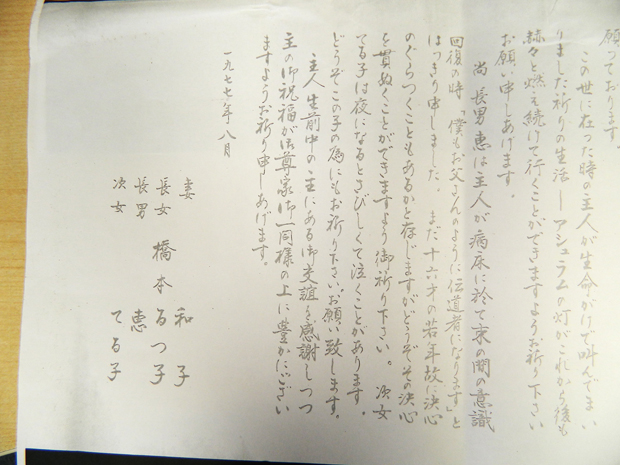 願っております。
この世に在った時の主人が生命がけで叫んでまい
りました祈りの生活ーアシュラムの灯がこれから後も
赫々と燃え続けて行くことができますようお祈り下さい
お願い申しあげます。
尚 長男恵は主人が病床に於て束の間の意識
回復の時「僕もお父さんのように伝道者になります」と
はっきり申しました。 まだ十六才の若年故に決心
のぐらつくこともあるかと存じますがどうぞその決心
を貫ぬくことができますよう御祈り下さい。 次女
てる子は夜になるとさびしくて泣くことがあります。
どうぞこの子の為にもお祈り下さい。お願い致します。
主人生前中の主にある御交誼を感謝しつつ
主の御祝福が御尊家御一同様の上に豊かにござい
ますようお祈り申しあげます。
一九七七年八月
妻 和子
長女 橋本るつ子
長男 恵
次女 てる子